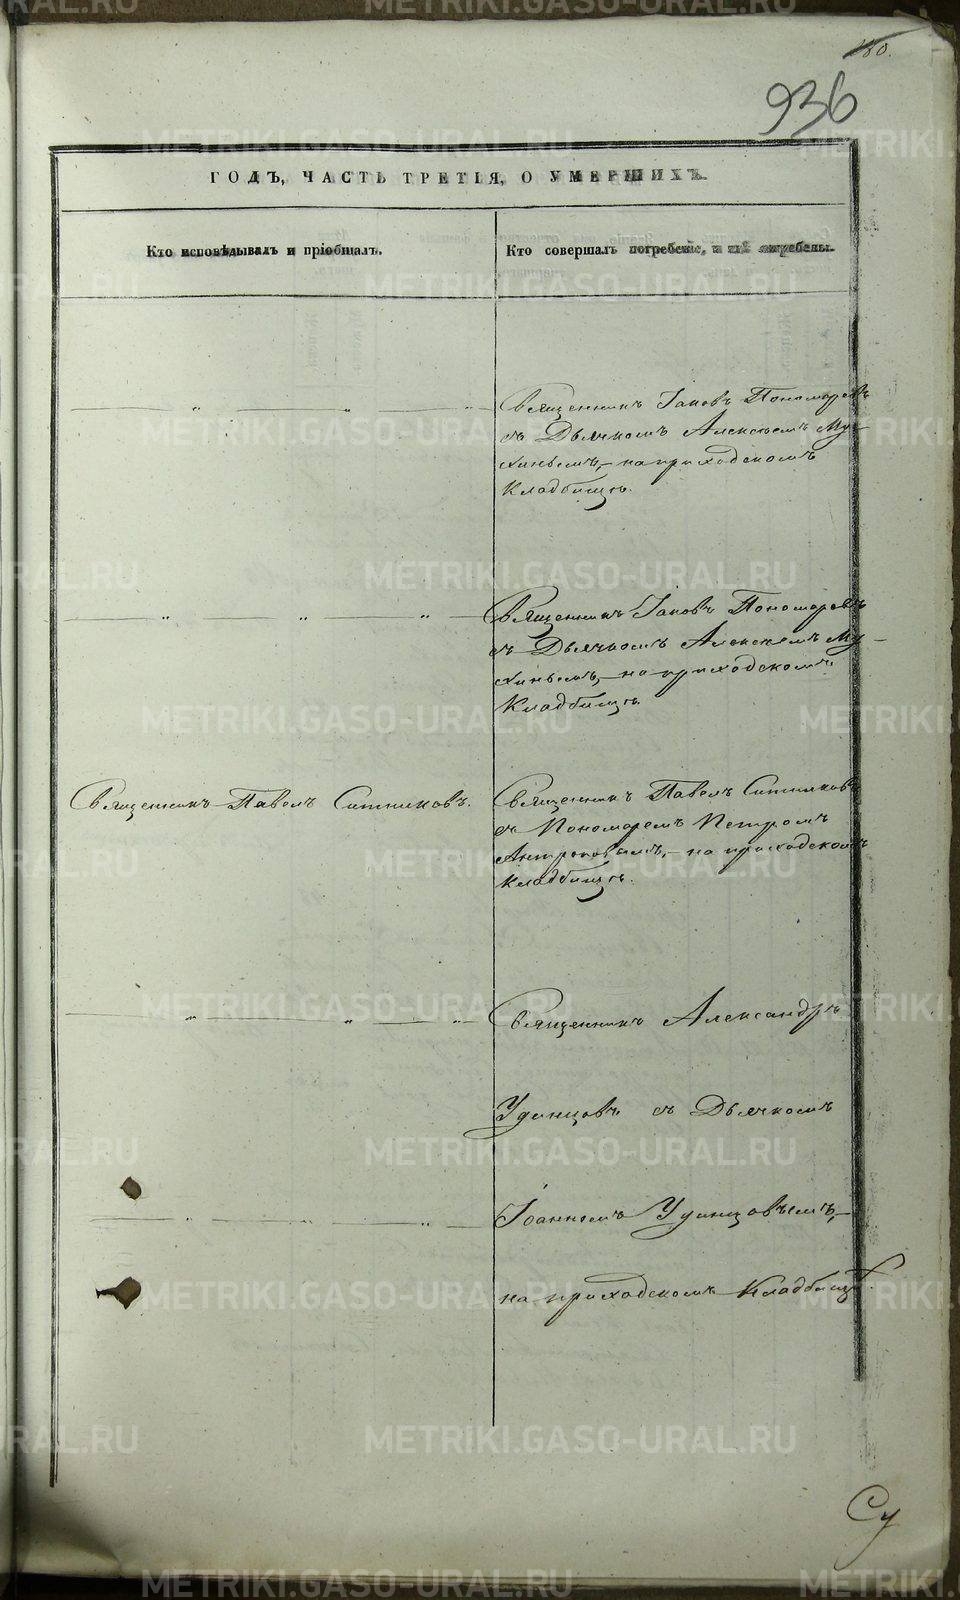 180.
936
ГОДЪ, ЧАСТЬ ТРЕТІЯ, О УМЕРШИХЪ.
Кто исповѣдывалъ и пріобщалъ.
Кто совершалъ погребеніе, и гдѣ погребены.
Священникъ Іаковъ Пономаревъ
съ Дьячкомъ Алексѣемъ Му-
хинымъ, на приходскомъ
Кладбищѣ.
Священникъ Іаковъ Пономаревъ
съ Дьячкомъ Алексѣемъ Му-
хинымъ, на приходскомъ
Кладбищѣ.
Священникъ Павелъ Ситниковъ.
Священникъ Павелъ Ситниковъ
съ Пономаремъ Петромъ
на приходскомъ
Кладбищѣ.
Священникъ Александръ
Удинцовъ съ Дьячкомъ
Іоанномъ Удинцовымъ,
на приходскомъ Кладбищѣ.
Су
METRIKI.GASO-URAL.RU